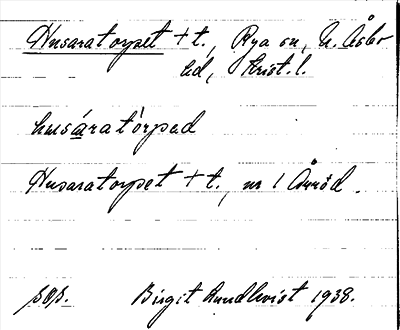 Husaratorpet † t., Rya sn, N. Åsbo
hd, Krist. l.
husáratòrpad
Husaratorpet † t., nr 1 Åvröd.
sop. Birgit Lundkvist 1938.